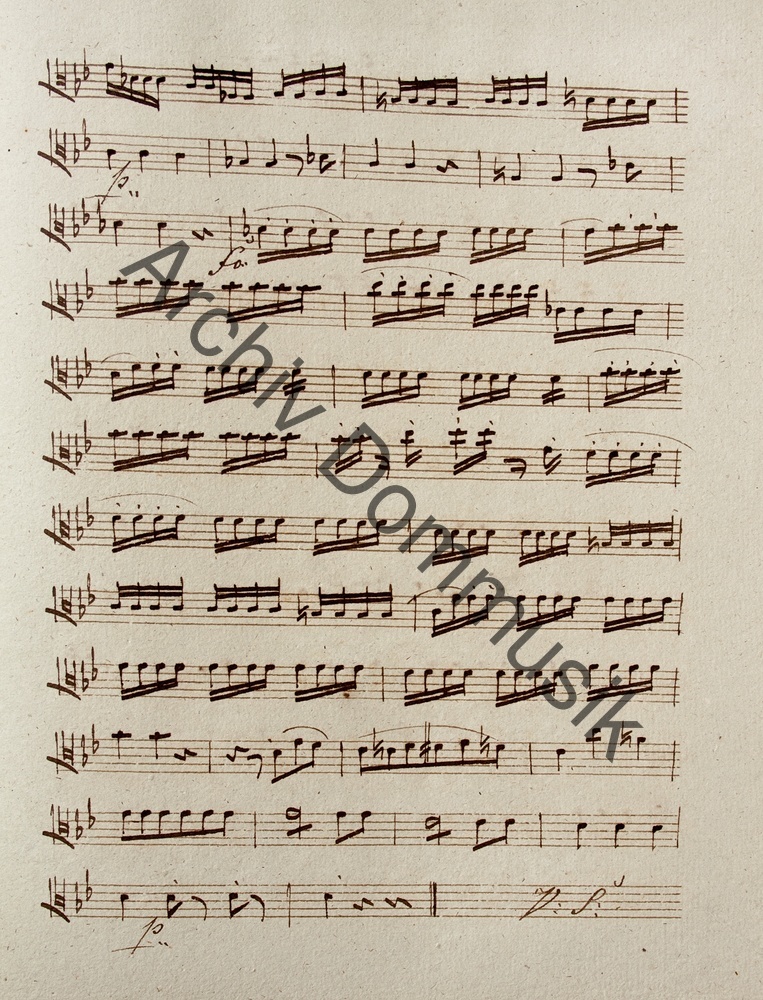 p:
fo:
Archiv Dommusik
p:
V: S: